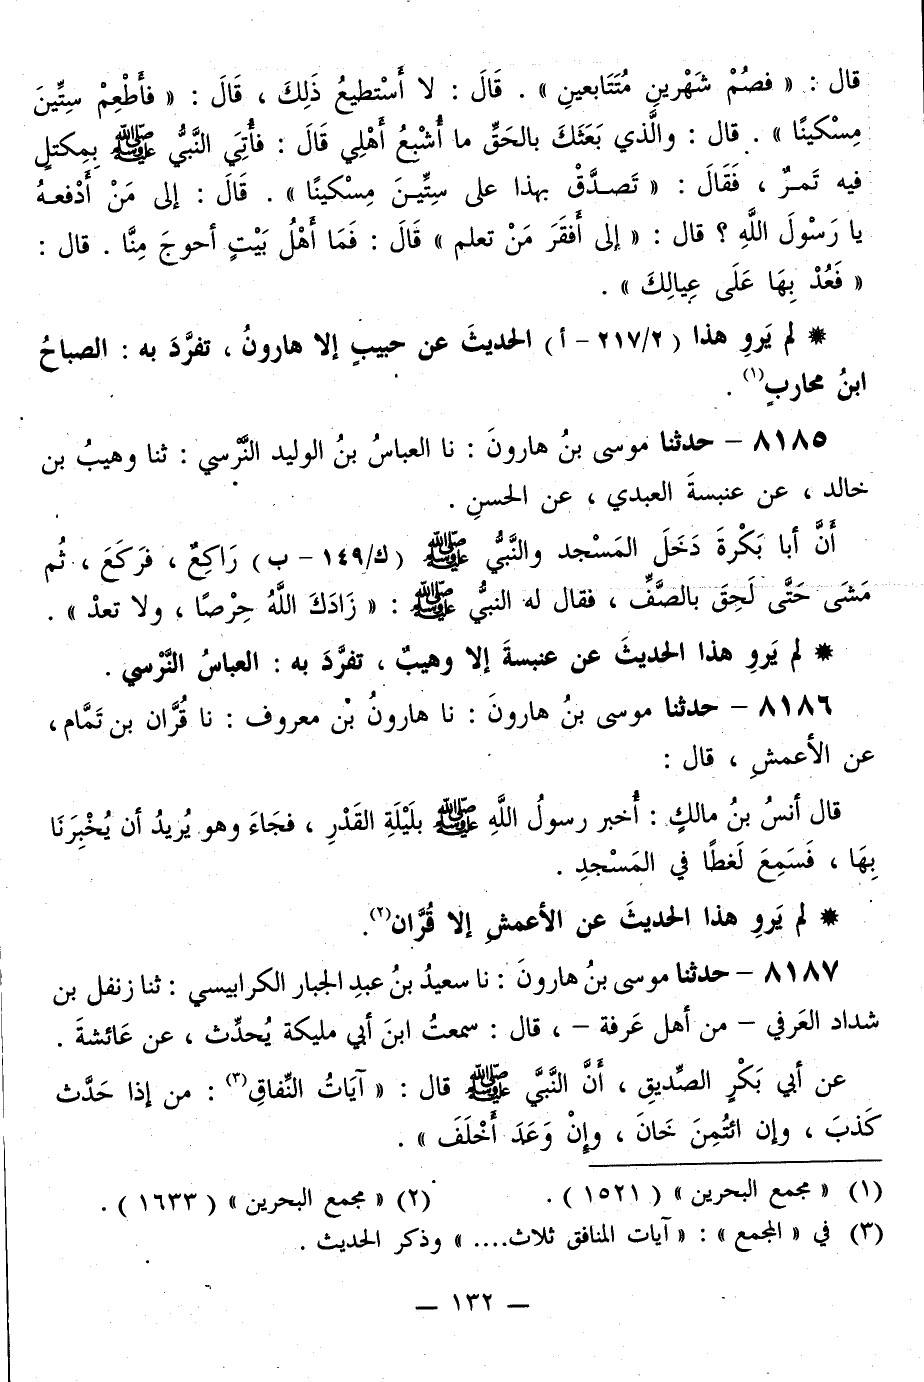 قال : « فصُمْ شَهْرينِ مُتَتَابعينِ » . قَالَ : لا أَسْتطيعُ ذَلِكَ ، قَالَ : « فأَطْعِمْ سِتِّينَ
مِسْكينًا » . قال : والَّذي بَعَثَكَ بالحَقِّ ما أُشْبِعُ أَهْلِي قَالَ : فأُتِيَ النَّبيُّ ﷺ بِمِكتلٍ
فيه تَمـرٌ ، فَقَالَ : « تَصدَّقْ بهذا على سِتِّيـنَ مِسْكينًا » . قَالَ : إلى مَنْ أَدْفعـهُ
يا رَسْولَ اللَّهِ ؟ قال : « إلى أَفقَرَ مَنْ تعلم » قَالَ : فَمَا أَهْلُ بَيْتٍ أحوجَ مِنَّا . قال :
« فَعُدْ بِهَا عَلَى عِيالِكَ » .
* لم يَروِ هذا ( ٢/‏٢١٧ – أ ) الحديثَ عن حبيبٍ إلا هارونُ ، تفرَّدَ به : الصباحُ
ابنُ محاربٍ(١) .
٨١٨٥ – حدثنا موسى بنُ هارونَ : نا العباسُ بنُ الوليد النَّرْسي : ثنا وهيبُ بن
خالد ، عن عنبسةَ العبدي ، عن الحسنِ .
أَنَّ أبا بَكْرةَ دَخَلَ المَسْجد والنَّبيُّ ﷺ ( ك/١٤٩ – ب ) رَاكِعٌ ، فرَكَعَ ، ثُم
مَشَى حَتَّى لَحِقَ بالصَّفِّ ، فقال له النبيُّ ﷺ : « زَادَكَ اللَّهُ حِرْصًا ، ولا تعدْ » .
* لم يَروِ هذا الحديثَ عن عنبسةَ إلا وهيبٌ ، تفرَّدَ به : العباسُ النَّرْسي .
٨١٨٦ – حدثنا موسى بنُ هارونَ : نا هارونُ بْن معروف : نا قُرَّان بن تَمَّام ،
عن الأعمشِ ، قال :
قال أنسُ بنُ مالكٍ : أُخبر رسولُ اللَّهِ ﷺ بلَيْلَةِ القَدْرِ ، فجَاءَ وهو يُريدُ أن يُخْبِرَنَا
بِهَا ، فَسَمِعَ لَغطًا في المَسْجدِ .
* لم يَروِ هذا الحديثَ عن الأعمشِ إلا قُرَّان(٢).
٨١٨٧ – حدثنا موسى بنُ هارونَ : نا سعيدُ بنُ عبدِ الجبار الكرابيسي : ثنا زنفل بن
شداد العَرفي – من أهل عَرفة – ، قال : سمعتُ ابنَ أبي مليكة يُحدِّث ، عن عَائشةَ .
عن أبي بَكْرٍ الصِّديقِ ، أَنَّ النَّبيَّ ﷺ قال : « آيَاتُ النِّفاقِ(٣) : من إذا حَدَّث
كَذبَ ، وإن ائتُمِنَ خَانَ ، وإِنْ وَعَدَ أَخْلَفَ » .
(١) « مجمع البحرين » ( ١٥٢١ ) . (٢) « مجمع البحرين » ( ١٦٣٣ ) .
(٣) في « المجمع » : « آيات المنافق ثلاث.... » وذكر الحديث .
– ١٣٢ –